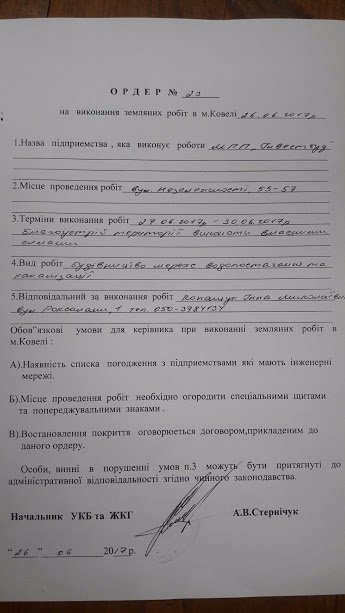 О Р Д Е Р № 23
на виконання земляних робіт в м.Ковелі 26.06.2017р
1.Назва підприємства , яка виконує роботи МПП „Інвестбуд"
2.Місце проведення робіт вул. Незалежності, 55-57
3.Терміни виконання робіт 27.06.2017р - 30.06.2017р
Благоустрій території виконати власними
силами
4.Вид робіт Будівництво мереж водопостачання та
каналізації
5.Відповідальний за виконання робіт Інна Миколаївна
вул. Роксолани, 1 тел. 050-3784737
Обов"язкові умови для керівника при виконанні земляних робіт в
м.Ковелі :
А).Наявність списка погодження з підприємствами які мають інженерні
мережі.
Б).Місце проведення робіт необхідно огородити спеціальними щитами
та попереджувальними знаками .
В).Востановлення покриття оговорюється договором,прикладеним до
даного ордеру.
Особи, винні в порушенні умов п.3 можуть бути притягнуті до
адміністративної відповідальності згідно чинного законодавства.
Начальник УКБ та ЖКГ А.В.Стернічук
"26" 06 2017р.